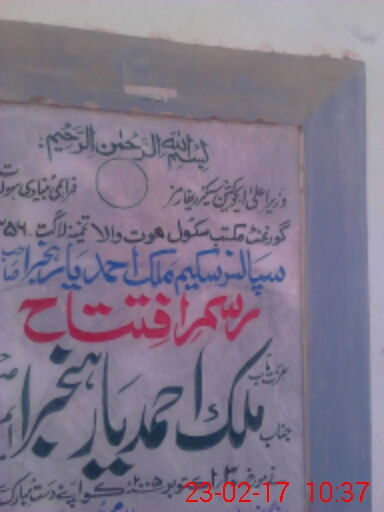 بسم الله الرحمن الرحیم
وزیراعلیٰ ایجوکیشن سیکٹر ریفارمز فراہمی بنیادی
گورنمنٹ مکتب سکول ہوت والا تخمینہ لاگت
سپانسر سکیم ملک احمد یار ہنجرا صاحب
رسم افتتاح
عزت مآب
جناب ملک احمد یار ہنجرا
نے مورخہ اکتوبر ۲۰۰۵ء کو اپنے دست مبارک
23-02-17 10:37